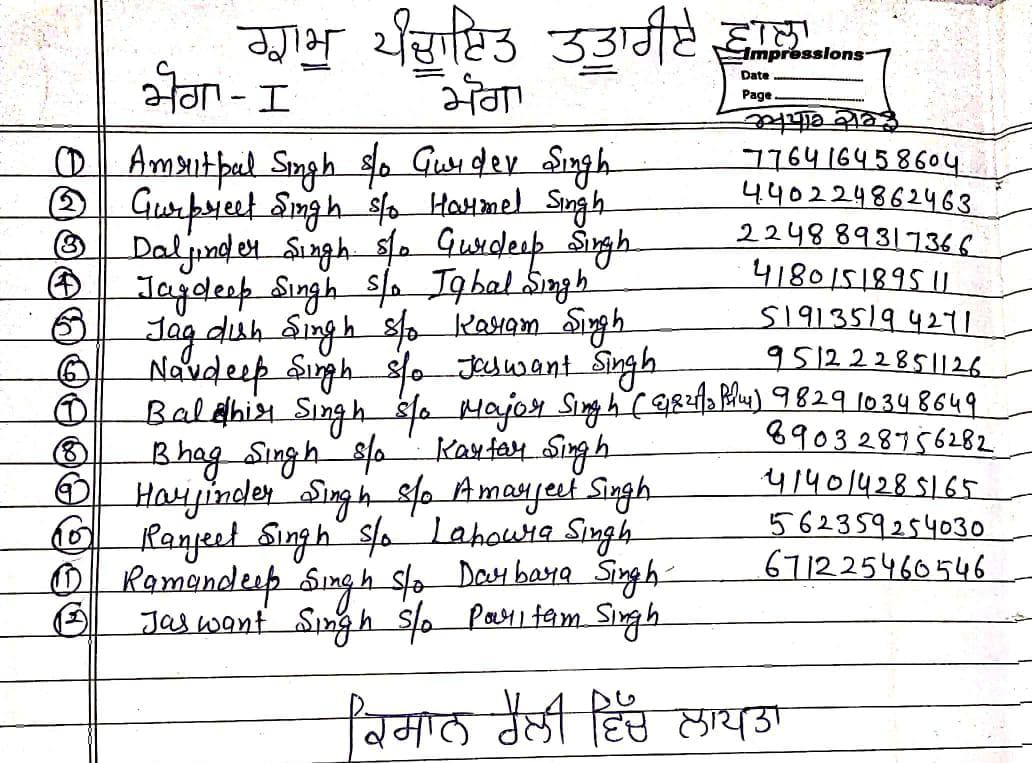 ਗ੍ਰਾਮ ਪੰਚਾਇਤ ਤਤਾਰੀਏ ਵਾਲਾ
Impressions
ਮੋਗਾ - I ਮੋਗਾ
Date
Page
ਅਧਾਰ ਕਾਰਡ
① Amritpal Singh s/o Gurdev Singh 776416458604
② Gurpreet Singh s/o Harmel Singh 440224862463
③ Daljinder Singh s/o Gurdeep Singh 224889317366
④ Jagdeep Singh s/o Iqbal Singh 418015189511
⑤ Jagdish Singh s/o Karam Singh 519135194271
⑥ Navdeep Singh s/o Jaswant Singh 951222851126
⑦ Baldhir Singh s/o Major Singh 982910348649
⑧ Bhag Singh s/o Kartar Singh 890328756282
⑨ Harjinder Singh s/o Amarjeet Singh 414014285165
⑩ Ranjeet Singh s/o Lahoura Singh 562359254030
⑪ Ramandeep Singh s/o Darbara Singh 671225460546
⑫ Jaswant Singh s/o Paritam Singh
ਕਿਸਾਨ ਰੈਲੀ ਵਿੱਚ ਲਾਪਤਾ